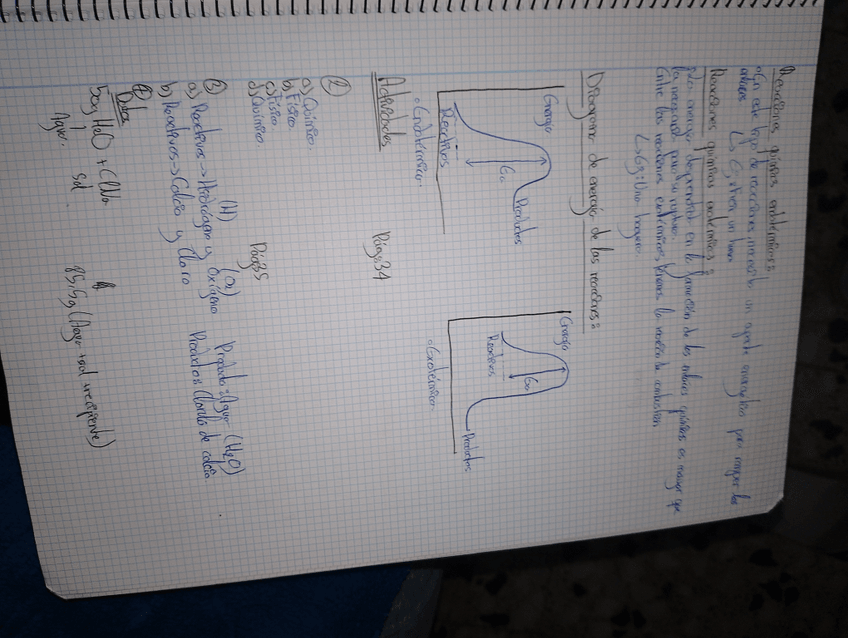 Reacciones químicas endotérmicas:
◦En este tipo de reacciones, necesita un aporte energético para romper los
enlaces ↳ Ej:
Reacciones químicas exotérmicas:
energía desprendida en la formación de los enlaces químicos es mayor que
la necesaria para su ruptura.
Entre las reacciones exotérmicas, tenemos la reacción de combustión
↳ Ej: Una hoguera.
Diagrama de energía de las reacciones:
Energía
Ea
Productos
Reactivos
◦Endotérmica.
Energía
Ea
Reactivos
Productos
◦Exotérmica
Actividades Pág: 34
②
a) Químico.
b) Físico
c) Físico
d) Químico.
Pág: 35
③
a) Reactivos → Hidrógeno y Oxígeno Producto = Agua (H₂O)
(H) (O₂)
b) Reactivos → Calcio y Cloro Producto = Cloruro de calcio
④
Datos
50g H₂O + ClNa 85,5g (Agua + sal + recipiente)
Agua. Sal.